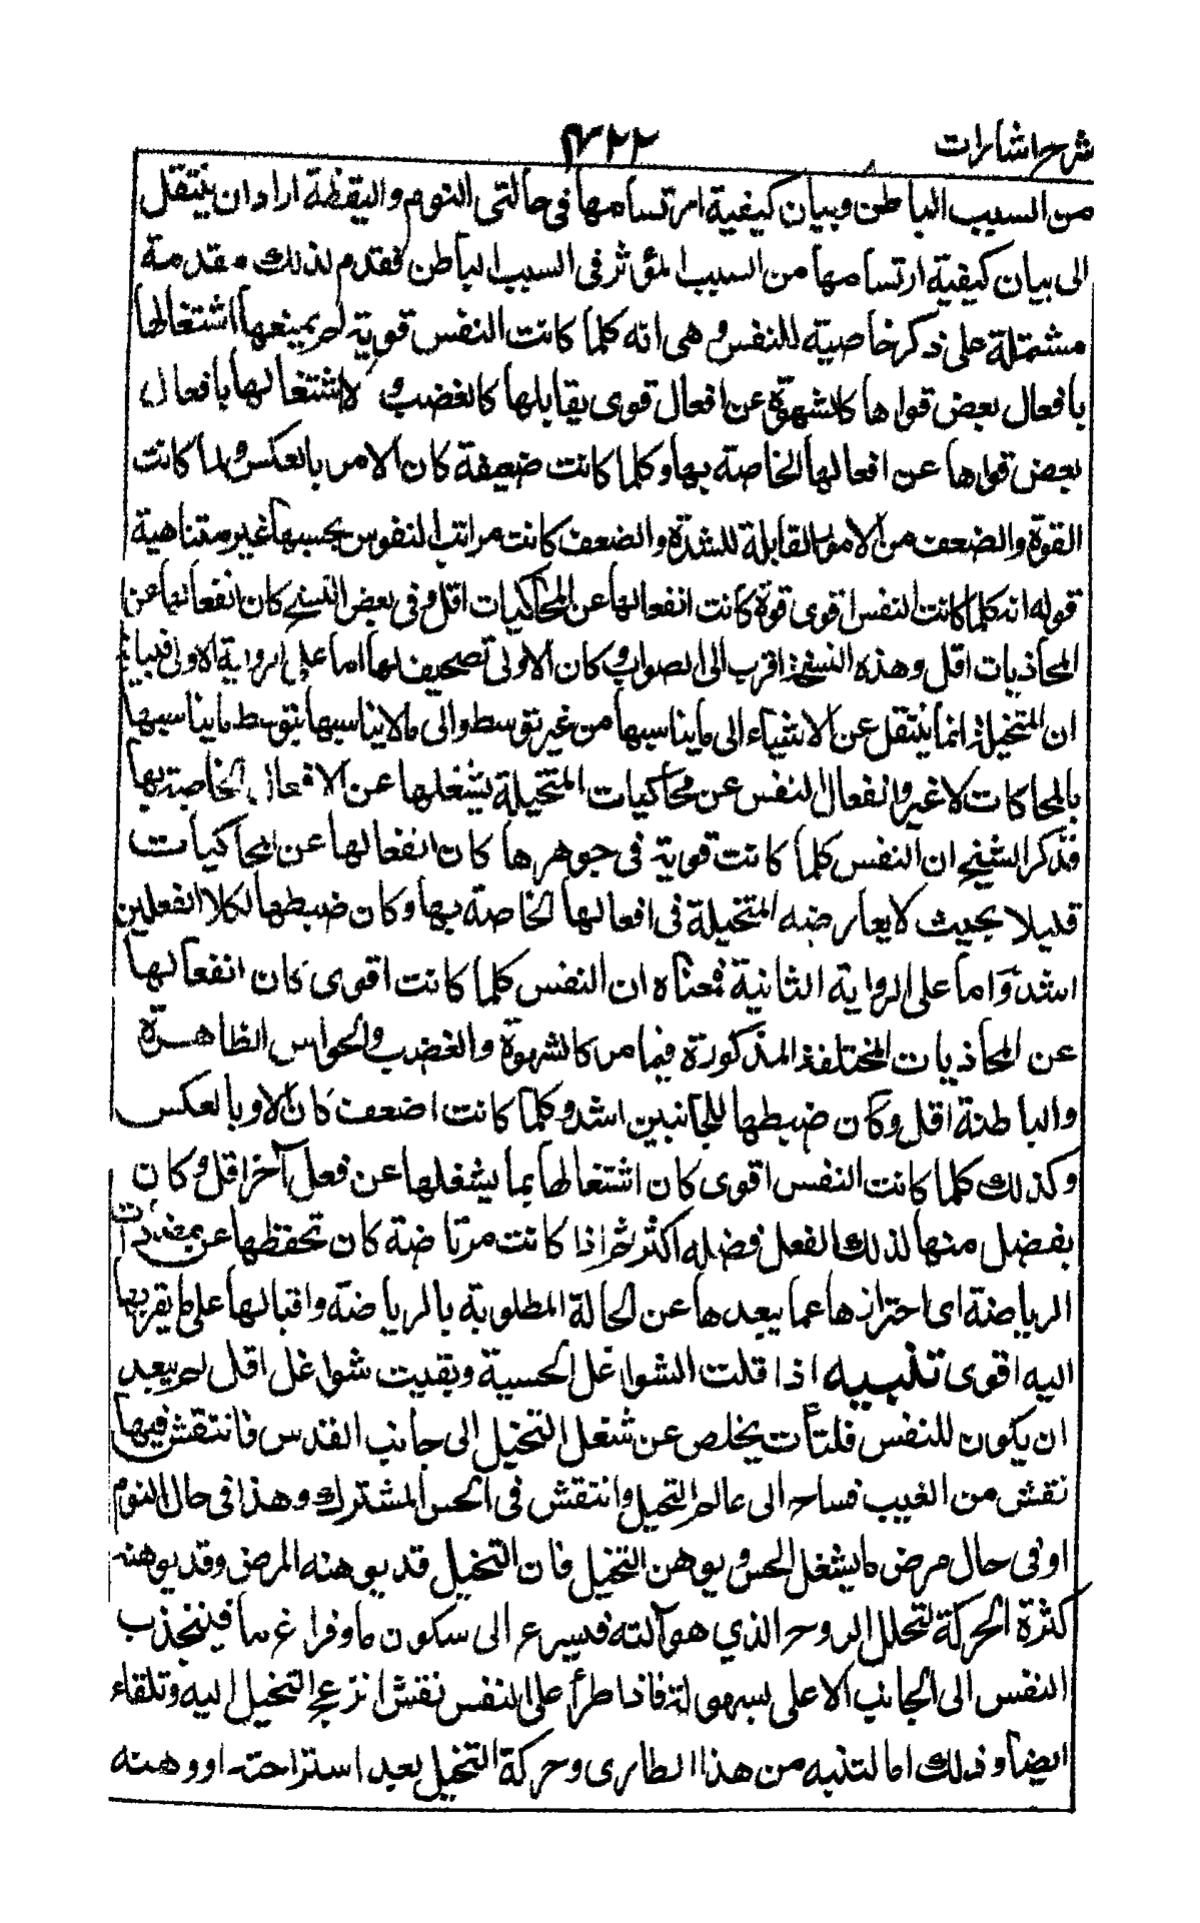 شرح اشارات
٣٢٢
من السبب الباطن وبيان كيفية ارتسامها في حالتي النوم واليقظة اراد ان ينتقل
الى بيان كيفية ارتسامها من السبب المؤثر في السبب الباطن فقدم لذلك مقدمة
مشتملة على ذكر خاصية للنفس وهي انه كلما كانت النفس قوية لم يمنعها اشتغالها
بافعال بعض قواها كالشهوة عن افعال قوى يقابلها كالغضب ولا اشتغالها بافعال
بعض قواها عن افعالها الخاصة بها وكلما كانت ضعيفة كان الامر بالعكس ولما كانت
القوة والضعف من الامور القابلة للشدة والضعف كانت مراتب النفوس بحسبها غير متناهية
قوله انه كلما كانت النفس اقوى قوة كانت انفعالها عن المحاكيات اقل وفي بعض النسخ كان انفعالها عن
المحاذيات اقل وهذه النسخة اقرب الى الصواب وكان الاولى تصحيف لها اما على الرواية الاولى فبيانه
ان المتخيلة انما ينتقل عن الاشياء الى ما يناسبها من غير توسط والى ما لا يناسبها بتوسط ما يناسبها
بالمحاكات لا غير وانفعال النفس عن محاكيات المتخيلة يشغلها عن الافعال الخاصة بها
فذكر الشيخ ان النفس كلما كانت قوية في جوهرها كان انفعالها عن المحاكيات
قليلا بحيث لا يعارضه المتخيلة في افعالها الخاصة بها وكان ضبطها لكلا الفعلين
اشد واما على الرواية الثانية فمعناه ان النفس كلما كانت اقوى كان انفعالها
عن المحاذيات المختلفة المذكورة فيما مر كالشهوة والغضب والحواس الظاهرة
والباطنة اقل وكان ضبطها للجانبين اشد وكلما كانت اضعف كان الاو بالعكس
وكذلك كلما كانت النفس اقوى كان اشتغالها بما يشغلها عن فعل آخر اقل وكان
يفضل منها لذلك الفعل فضله اكثر ثم اذا كانت مرتاضة كان تحفظها عن مضادات
الرياضة اى احترازها عما يبعدها عن الحالة المطلوبة بالرياضة واقبالها على ما يقربها
اليه اقوى تنبيه اذا قلت الشواغل الحسية وبقيت شواغل اقل لم يبعد
ان يكون للنفس فلتأت يخلص عن شغل التخيل الى جانب القدس فانتقش فيها
نقش من الغيب فساح الى عالم التخيل وانتقش في الحس المشترك وهذا في حال النوم
او في حال مرض ما يشغل الحس ويوهن التخيل فان التخيل قد يوهنه المرض وقد يوهنه
كثرة الحركة لتحلل الروح الذي هو آلته فيسرع الى سكون ما وفراغ ما فينجذب
النفس الى الجانب الاعلى بسهولة فاذا طرأ على النفس نقش انزعج التخيل اليه وتلقاء
ايضا وذلك اما لتنبه من هذا الطارى وحركة التخيل بعيد استراحته او وهنه